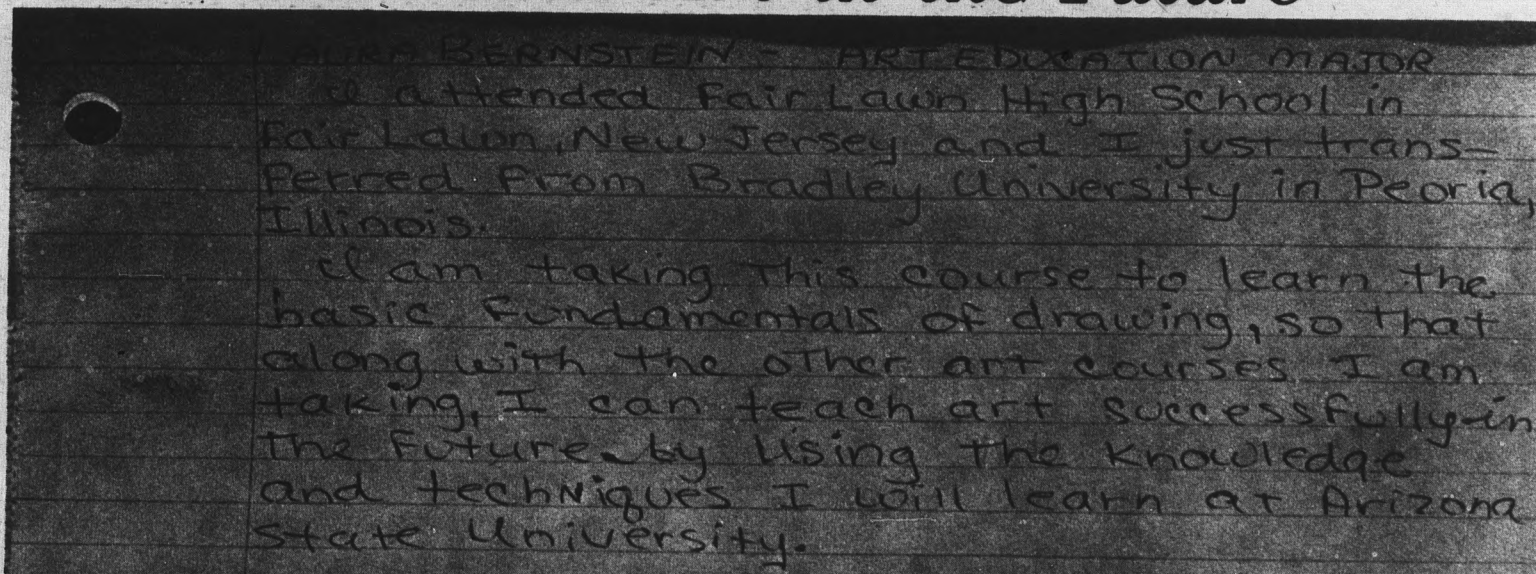 in the Future
LAURA BERNSTEIN - ART EDUCATION MAJOR
I attended Fair Lawn High School in
Fair Lawn, New Jersey and I just trans-
ferred from Bradley University in Peoria,
Illinois.
I am taking this course to learn the
basic fundamentals of drawing, so that
along with the other art courses I am
taking, I can teach art successfully in
the future by using the knowledge
and techniques I will learn at Arizona
State University.